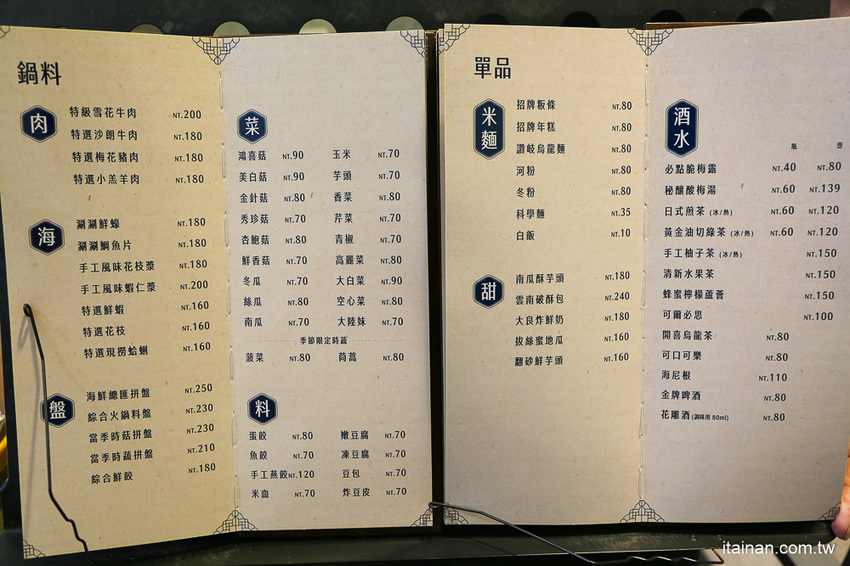 鍋料
肉
特級雪花牛肉 NT.200
特選沙朗牛肉 NT.180
特選梅花豬肉 NT.180
特選小羔羊肉 NT.180
海
涮涮鮮蠔 NT.180
涮涮鯛魚片 NT.180
手工風味花枝漿 NT.180
手工風味蝦仁漿 NT.200
特選鮮蝦 NT.160
特選花枝 NT.160
特選現撈蛤蜊 NT.160
盤
海鮮總匯拼盤 NT.250
綜合火鍋料盤 NT.230
當季時菇拼盤 NT.230
當季時蔬拼盤 NT.210
綜合鮮餃 NT.180
菜
鴻喜菇 NT.90 玉米 NT.70
美白菇 NT.90 芋頭 NT.70
金針菇 NT.80 香菜 NT.80
秀珍菇 NT.70 芹菜 NT.70
杏鮑菇 NT.80 青椒 NT.70
鮮香菇 NT.70 高麗菜 NT.80
冬瓜 NT.70 大白菜 NT.90
絲瓜 NT.80 空心菜 NT.80
南瓜 NT.70 大陸妹 NT.70
季節限定時蔬
菠菜 NT.80 茼蒿 NT.80
料
蛋餃 NT.80 嫩豆腐 NT.70
魚餃 NT.70 凍豆腐 NT.70
手工燕餃 NT.120 豆包 NT.70
米血 NT.70 炸豆皮 NT.70
單品
米麵
招牌粄條 NT.80
招牌年糕 NT.80
讚岐烏龍麵 NT.80
河粉 NT.80
冬粉 NT.80
科學麵 NT.35
白飯 NT.10
甜
南瓜酥芋頭 NT.180
雲南破酥包 NT.240
大良炸鮮奶 NT.180
拔絲蜜地瓜 NT.160
翻砂鮮芋頭 NT.160
酒水
瓶 壺
必點脆梅露 NT.40 NT.80
秘釀酸梅湯 NT.60 NT.139
日式煎茶 (冰/熱) NT.60 NT.120
黃金油切綠茶 (冰/熱) NT.60 NT.120
手工柚子茶 (冰/熱) NT.150
清新水果茶 NT.150
蜂蜜檸檬蘆薈 NT.150
可爾必思 NT.100
開喜烏龍茶 NT.80
可口可樂 NT.80
海尼根 NT.110
金牌啤酒 NT.80
花雕酒 (調味用 80ml) NT.80
itainan.com.tw